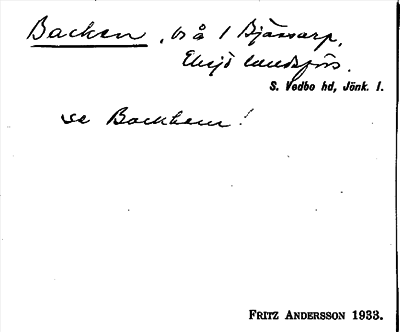 Backen, vså 1 Bjässarp,
Eksjö landsförs.
S. Vedbo hd, Jönk. l.
se Backhem!
FRITZ ANDERSSON 1933.